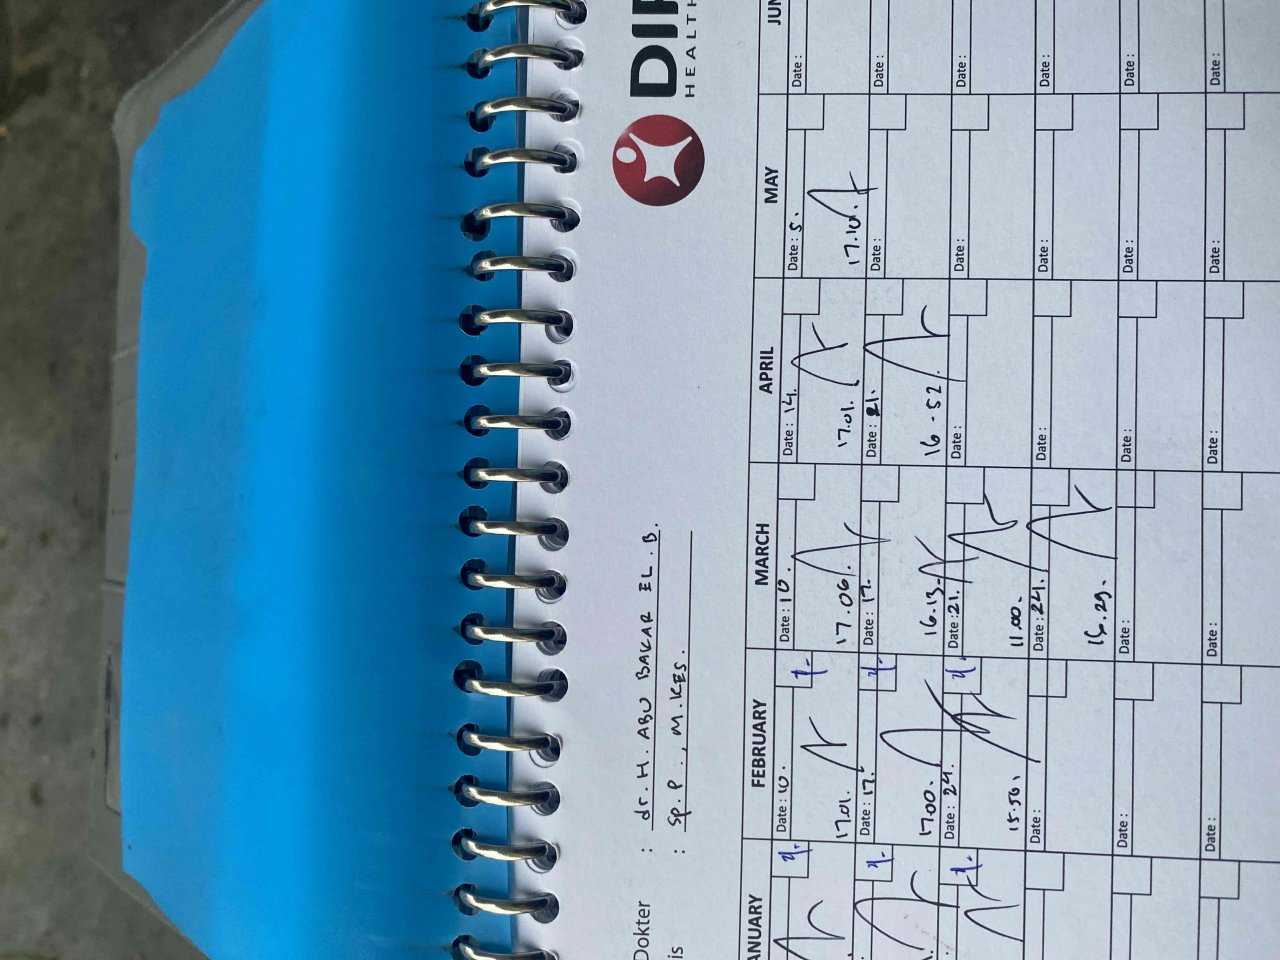 DI
HEALTH
Dokter : dr. H. ABU BAKAR EL. B.
is : Sp. P., M. KES.
ANUARY FEBRUARY MARCH APRIL MAY JUN
Date : 10. Date : 10. Date : 14. Date : 5. Date :
17.01. 17.06. 17.01. 17.10.
Date : 17. Date : 17. Date : 21. Date : Date :
17.00. 16.13. 16-52.
Date : 24. Date : 21. Date : Date : Date :
15.50. 11.00.
Date : Date : 24. Date : Date : Date :
29.
Date : Date : Date : Date : Date :
Date : Date : Date : Date : Date :